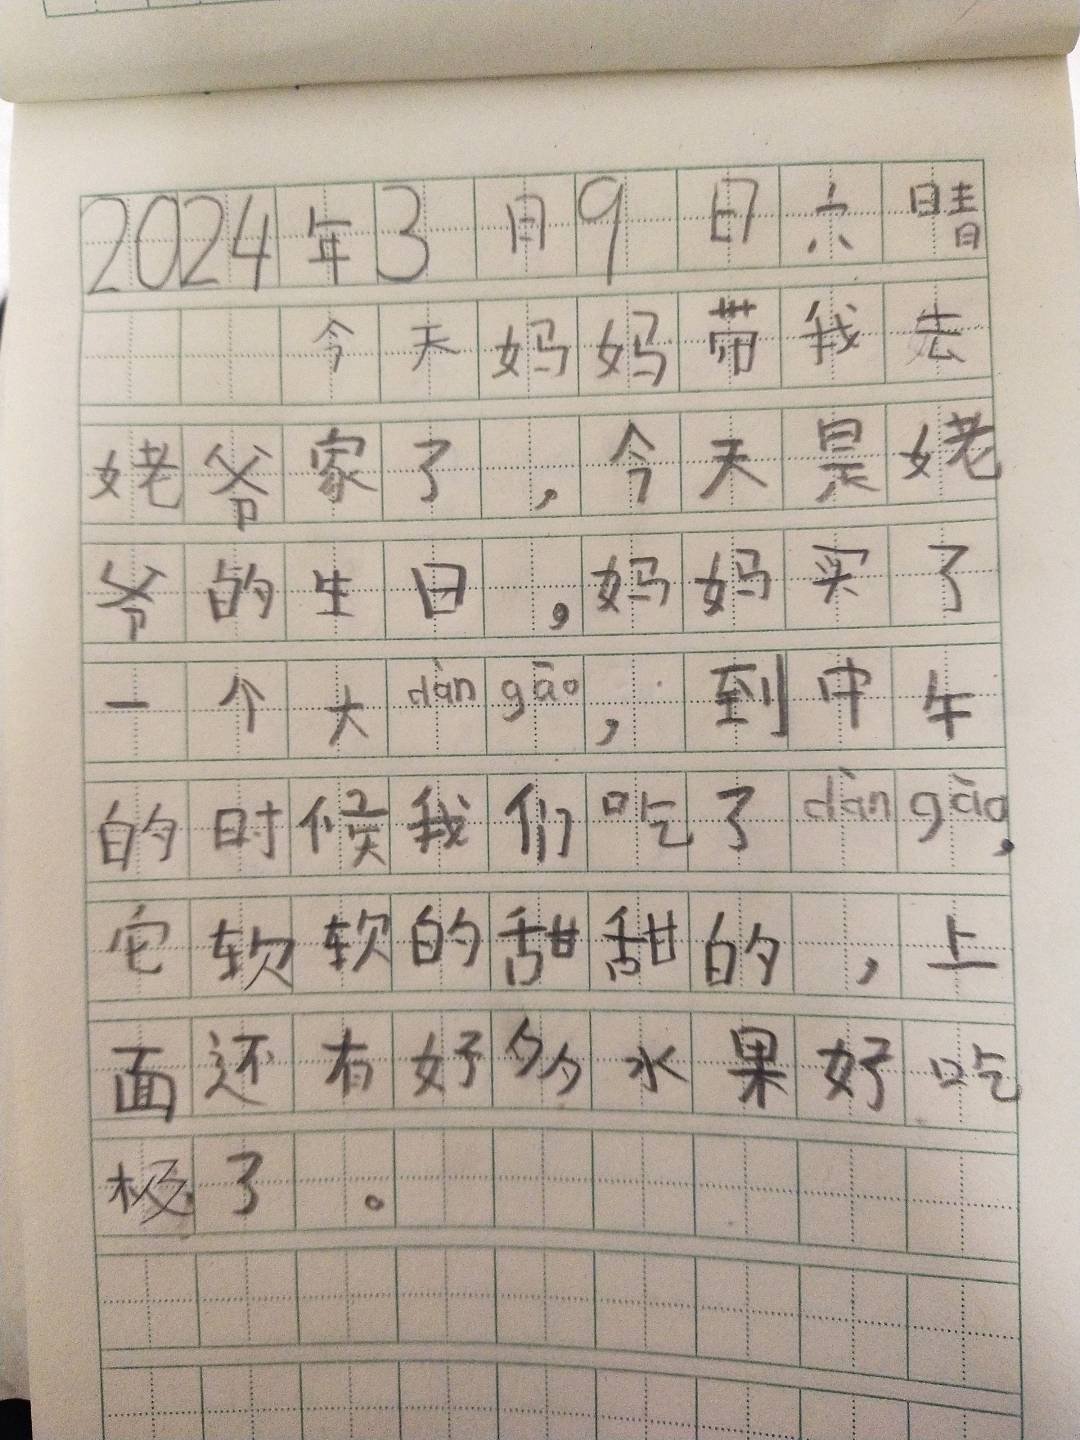 2024年3月9日六晴
今天妈妈带我去
姥爷家了，今天是姥
爷的生日，妈妈买了
一个大dàn gāo，到中午
的时候我们吃了dàn gāo，
它软软的甜甜的，上
面还有好多水果好吃
极了。